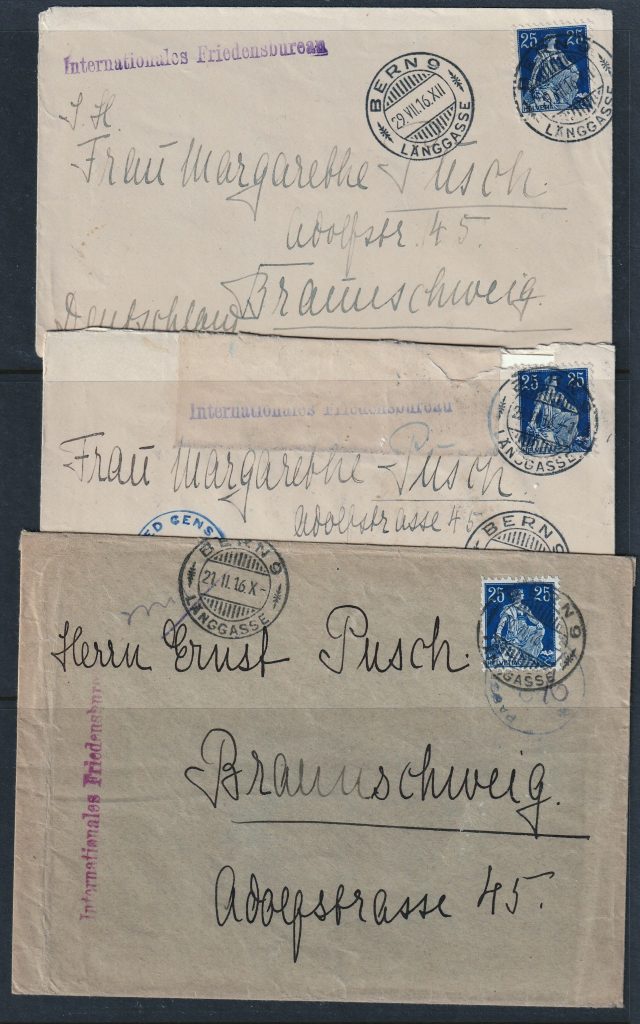 Internationales Friedensbureau
25 25
BERN 9
29.VII.16.XII
LÄNGGASSE
LÄNGGASSE
S. H.
Frau Margarethe Pusch.
Adolfstr. 45.
Braunschweig.
Deutschland
Internationales Friedensbureau
25 25
LÄNGGASSE
Frau Margarethe Pusch.
Adolfstrasse 45
ED CENS
BERN 9
BERN 9
21.II.16.X-
LÄNGGASSE
25 25
N 9
GASSE
Herrn Ernst Pusch.
Internationales Friedensbure
Braunschweig.
Adolfstrasse 45.